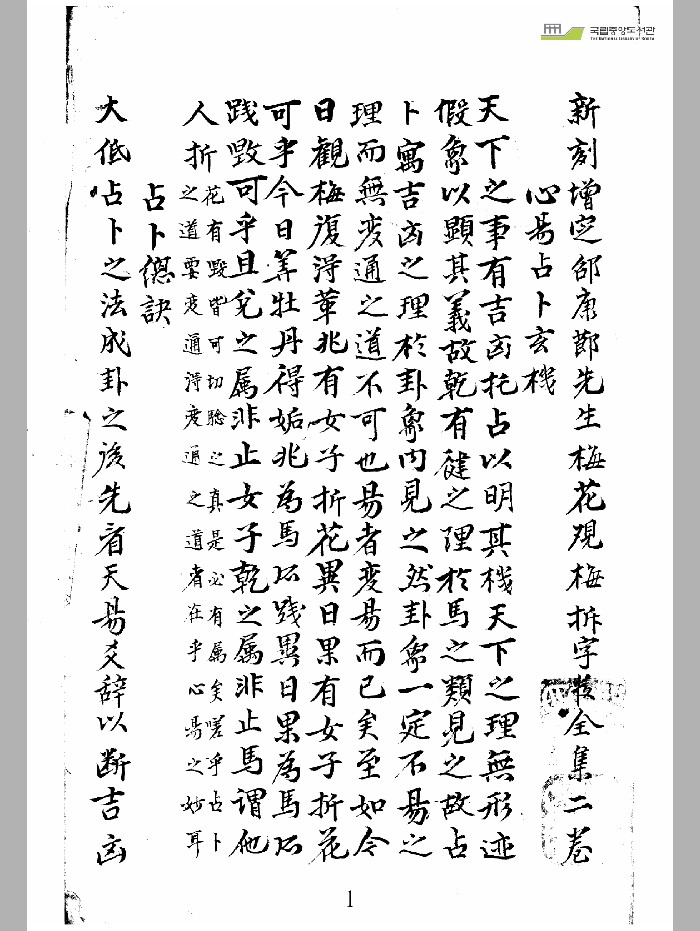 국립중앙도서관
THE NATIONAL LIBRARY OF KOREA
新刻增定邵康節先生梅花观梅拆字數全集二卷
心易占卜玄機
天下之事有吉凶托占以明其機天下之理無形迹
假象以顯其義故乾有健之理於馬之類見之故占
卜寓吉凶之理於卦象内見之然卦象一定不易之
理而無变通之道不可也易者变易而已矣至如今
日觀梅復得革兆有女子折花異日果有女子折花
可乎今日筭牡丹得姤兆為馬所践異日果為馬所
践毁可乎且兊之属非止女子乾之属非止馬谓他
人折花有毁皆可切驗之真是必有属矣嗟乎占卜
之道要变通得变通之道者在乎心易之妙耳
占卜總訣
大低占卜之法成卦之後先看天易爻辞以断吉凶
1